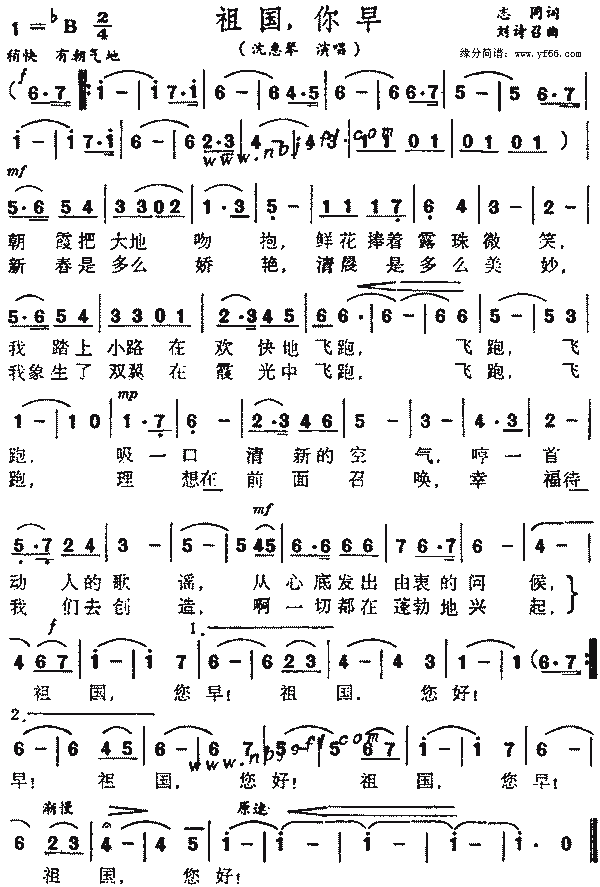 祖国,你早
1=♭B 2/4
志同词
刘诗召曲
稍快 有朝气地
(沈惠琴 演唱)
缘分简谱:www.yf66.com
f
(6·7 ‖: i - | i 7·i | 6 - | 6 4·5 | 6 - | 6 6·7 | 5 - | 5 6·7 |
i - | i 7·i | 6 - | 6 2·3 | 4 - | 4 3· | 1 1 | 0 1 0 1 | 0 1 0 )
www.nbjffl com
mf
5·6 5 4 | 3 3 0 2 | 1·3 | 5 - | 1 1 1 7 | 6 4 | 3 - | 2 - |
朝 霞把 大地 吻 抱, 鲜花 捧着 露 珠 微 笑,
新 春是 多么 娇 艳, 清晨 是 多么 美 妙,
5·6 5 4 | 3 3 0 1 | 2·3 4 5 | 6 6· | 6 - | 6 6 | 5 - | 5 3 |
我 踏上 小路 在 欢 快地 飞跑, 飞 跑, 飞
我象生了 双翼 在 霞 光中 飞跑, 飞 跑, 飞
mp
1 - | 1 0 | 1·7 | 6 - | 2·3 4 6 | 5 - | 3 - | 4·3 | 2 - |
跑, 吸一口 清 新的 空 气, 哼一首
跑, 理 想在 前 面 召 唤, 幸 福待
mf
5·7 2 4 | 3 - | 5 - | 5 4 5 | 6·6 6 6 | 7 6 7·6 | 6 - | 4 - |
动 人的 歌 谣, 从 心 底 发出 由衷 的 问 候,
我 们去 创 造, 啊 一 切 都在 蓬勃 地 兴 起,
f
1.
4 6 7 | i - | i 7 | 6 - | 6 2 3 | 4 - | 4 3 | 1 - | 1 (6·7 :‖
祖 国, 您 早! 祖 国. 您 好!
2.
6 - | 6 4 5 | 6 - | 6 7 | 5 - | 5 6 7 | i - | i 7 |
www.nbjffl com
早! 祖 国, 您 好! 祖 国, 您 早!
渐慢 原速
6 2 3 | 4 - | 4 5 | i - | i - | i - | i - | i·0
祖 国, 您 好!